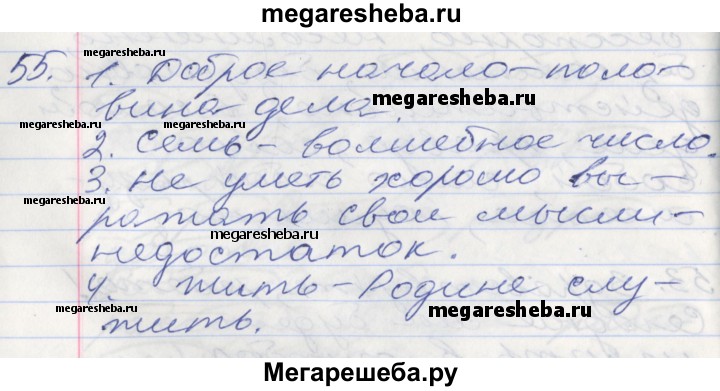 megaresheba.ru
megaresheba.ru
55. 1. Доброе начало - поло-
вина дела.
megaresheba.ru
megaresheba.ru
megaresheba.ru
2. Семь - волшебное число.
3. Не уметь хорошо вы-
megaresheba.ru
ражать свои мысли -
megaresheba.ru
недостаток.
4. Жить - Родине слу-
megaresheba.ru
megaresheba.ru
жить.
Мегарешеба.ру